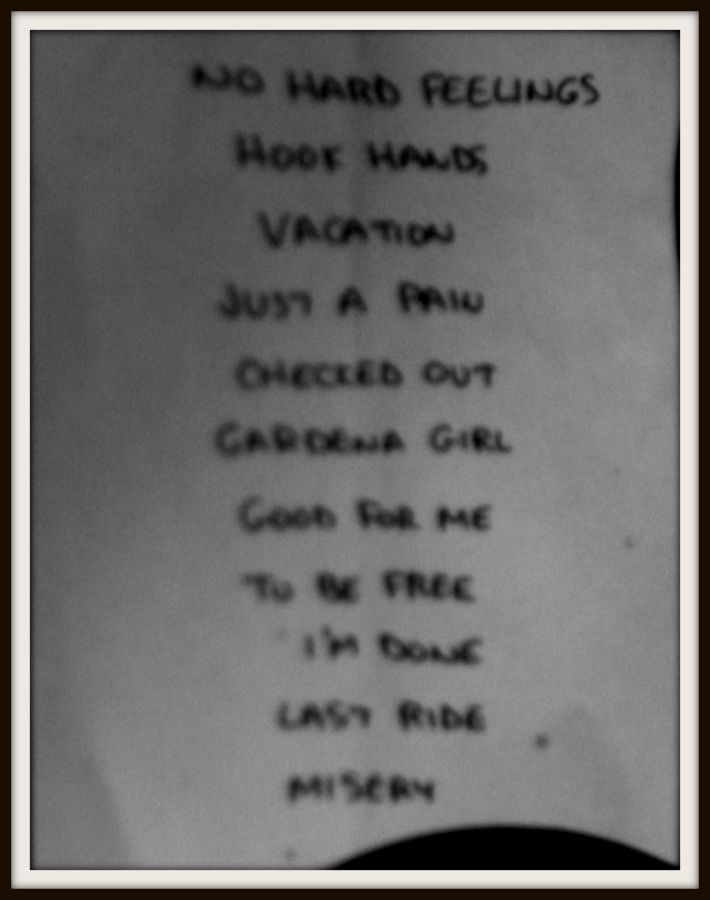 NO HARD FEELINGS
HOOK HANDS
VACATION
JUST A PAIN
CHECKED OUT
GARDENA GIRL
GOOD FOR ME
TO BE FREE
I'M DONE
LAST RIDE
MISERY